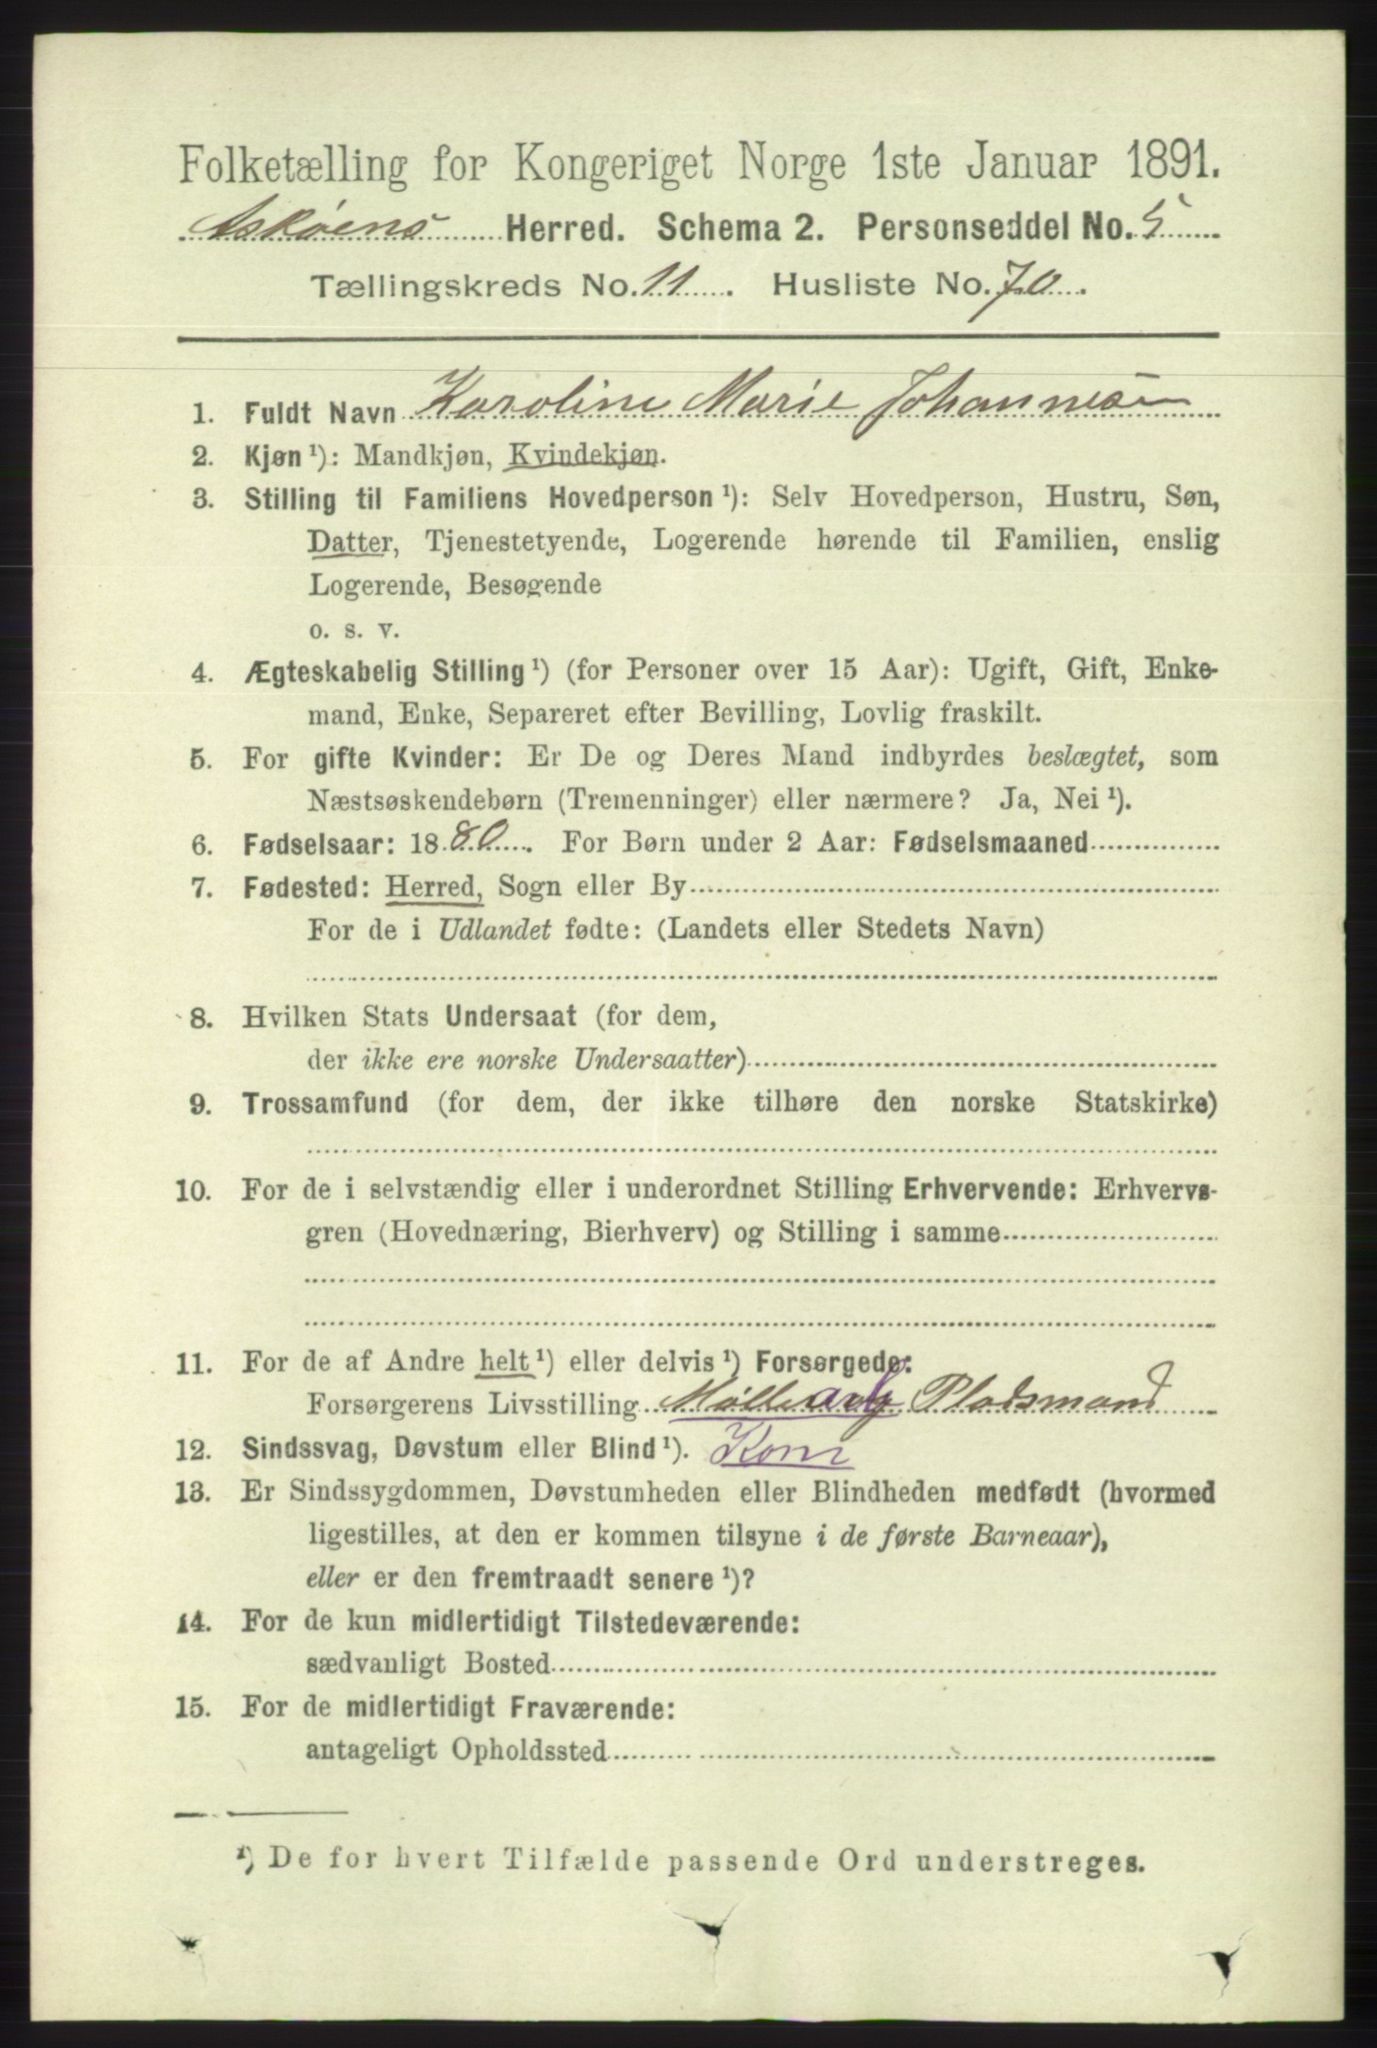 Folketælling for Kongeriget Norge 1ste Januar 1891.
Askøens Herred. Schema 2. Personseddel No. 5
Tællingskreds No. 11. Husliste No. 70.
1. Fuldt Navn Karoline Marie Johannesen
2. Kjøn ¹): Mandkjøn, Kvindekjøn.
3. Stilling til Familiens Hovedperson ¹): Selv Hovedperson, Hustru, Søn,
Datter, Tjenestetyende, Logerende hørende til Familien, enslig
Logerende, Besøgende
o. s. v.
4. Ægteskabelig Stilling ¹) (for Personer over 15 Aar): Ugift, Gift, Enke-
mand, Enke, Separeret efter Bevilling, Lovlig fraskilt.
5. For gifte Kvinder: Er De og Deres Mand indbyrdes beslægtet, som
Næstsøskendebørn (Tremenninger) eller nærmere? Ja, Nei ¹).
6. Fødselsaar: 1880. For Børn under 2 Aar: Fødselsmaaned
7. Fødested: Herred, Sogn eller By
For de i Udlandet fødte: (Landets eller Stedets Navn)
8. Hvilken Stats Undersaat (for dem,
der ikke ere norske Undersaatter)
9. Trossamfund (for dem, der ikke tilhøre den norske Statskirke)
10. For de i selvstændig eller i underordnet Stilling Erhvervende: Erhvervs-
gren (Hovednæring, Bierhverv) og Stilling i samme
11. For de af Andre helt ¹) eller delvis ¹) Forsørgede:
Forsørgerens Livsstilling Møllearb Pladsmand
12. Sindssvag, Døvstum eller Blind ¹). Korn
13. Er Sindssygdommen, Døvstumheden eller Blindheden medfødt (hvormed
ligestilles, at den er kommen tilsyne i de første Barneaar),
eller er den fremtraadt senere ¹)?
14. For de kun midlertidigt Tilstedeværende:
sædvanligt Bosted
15. For de midlertidigt Fraværende:
antageligt Opholdssted
¹) De for hvert Tilfælde passende Ord understreges.